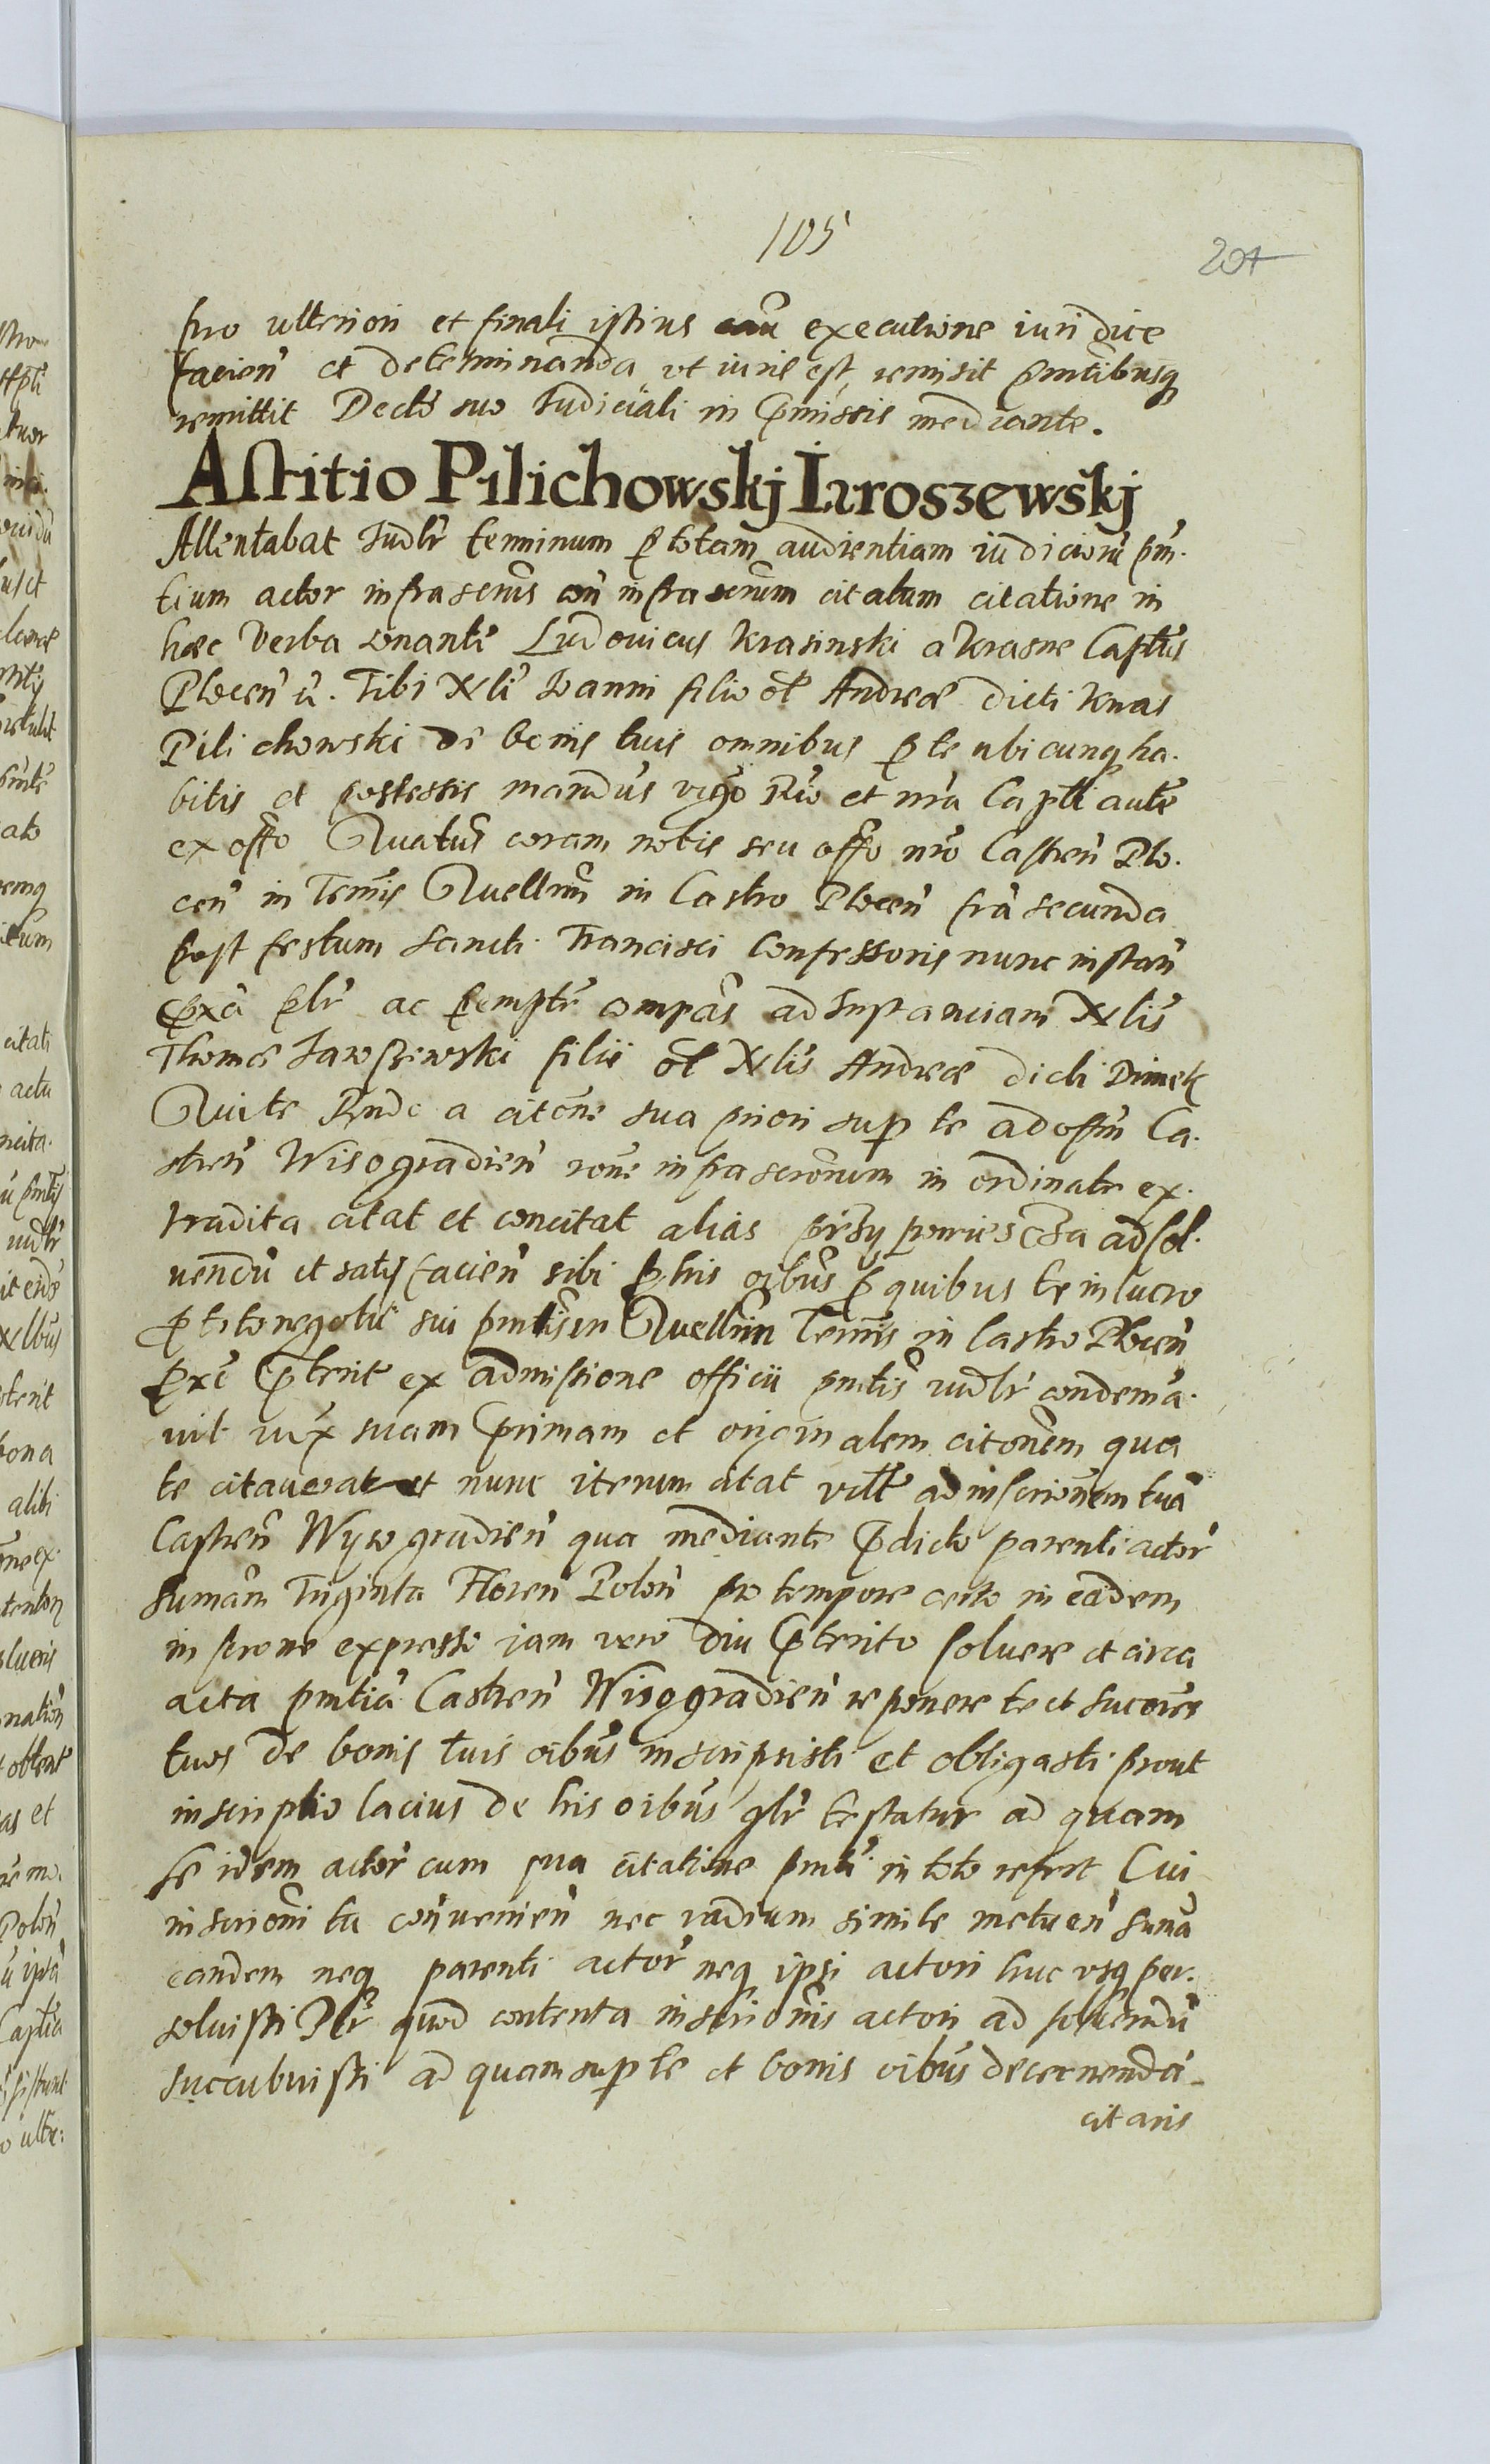 105
201
pro ulteriori et finali istius cau executione iuridice
facien et determinanda ut iuris est, remisit pntibusq
remittit Decto suo Iudiciali in pmissis mediante.
Astitio Pilichowskj Iaroszewskj
Attentabat Iudlr terminum p totam audientiam iudicioru pn.
tium actor infrascrus con infrascrum citatum citatione in
hæc verba sonante Ludovicus Krasinski a Krasne Captus
Plocen &. Tibi Nli Ioanni filio ol Andreæ dicti Knas
Pilichowski de bonis tuis omnibus p te ubicunq ha.
bitis et possessis mandus vigo Rio et nra Captli aute
ex offo Quatus coram nobis seu offo nro Castren Plo.
cen in Termis Querellrum in Castro Plocen fra secunda
post festum Sancti Francisci Confessoris nunc instan
pxa plr ac pemptr compas ad Instanciam Nlis
Thomæ Iaroszewski filii ol Nlis Andreæ dicti Dimek
Qui te Rndo a citone sua priori sup te ad offm Ca.
stren Wisogradien rone infrascronum in ordinate ex.
tradita citat et concitat alias przypowiescza ad sol.
vendu et satisfacien sibi p his oibus p quibus te in lucro
p toto negotii sui pntis in Querellrum Termis in Castro Plocen
pxe pterit ex admissione officii pntis iudlr condemna.
vit iux suam primam et originalem citonem qua
te citaverat et nunc iterum citat vidlt ad inscrionem tua
Castren Wysogradien qua mediante pdicto parenti actor
Sumam Triginta Floren Polon pro tempore certo in eadem
inscrone expresso iam vero diu pterito solvere et circa
acta pntia Castren Wisogradien reponere te et succores
tuos de bonis tuis oibus inscripsisti et obligasti prout
inscriptio lacius de his oibus glr testatur ad quam
se idem actor cum pna citatione pnti in toto refert Cui
inscrioni tu convenien nec vadium simile metuen Suma
eandem neq parenti actor neq ipsi actori huc usq per.
solvisti Plr quod contenta inscrionis actori ad solvendu
succubuisti ad quam sup te et bonis oibus decernenda
citaris